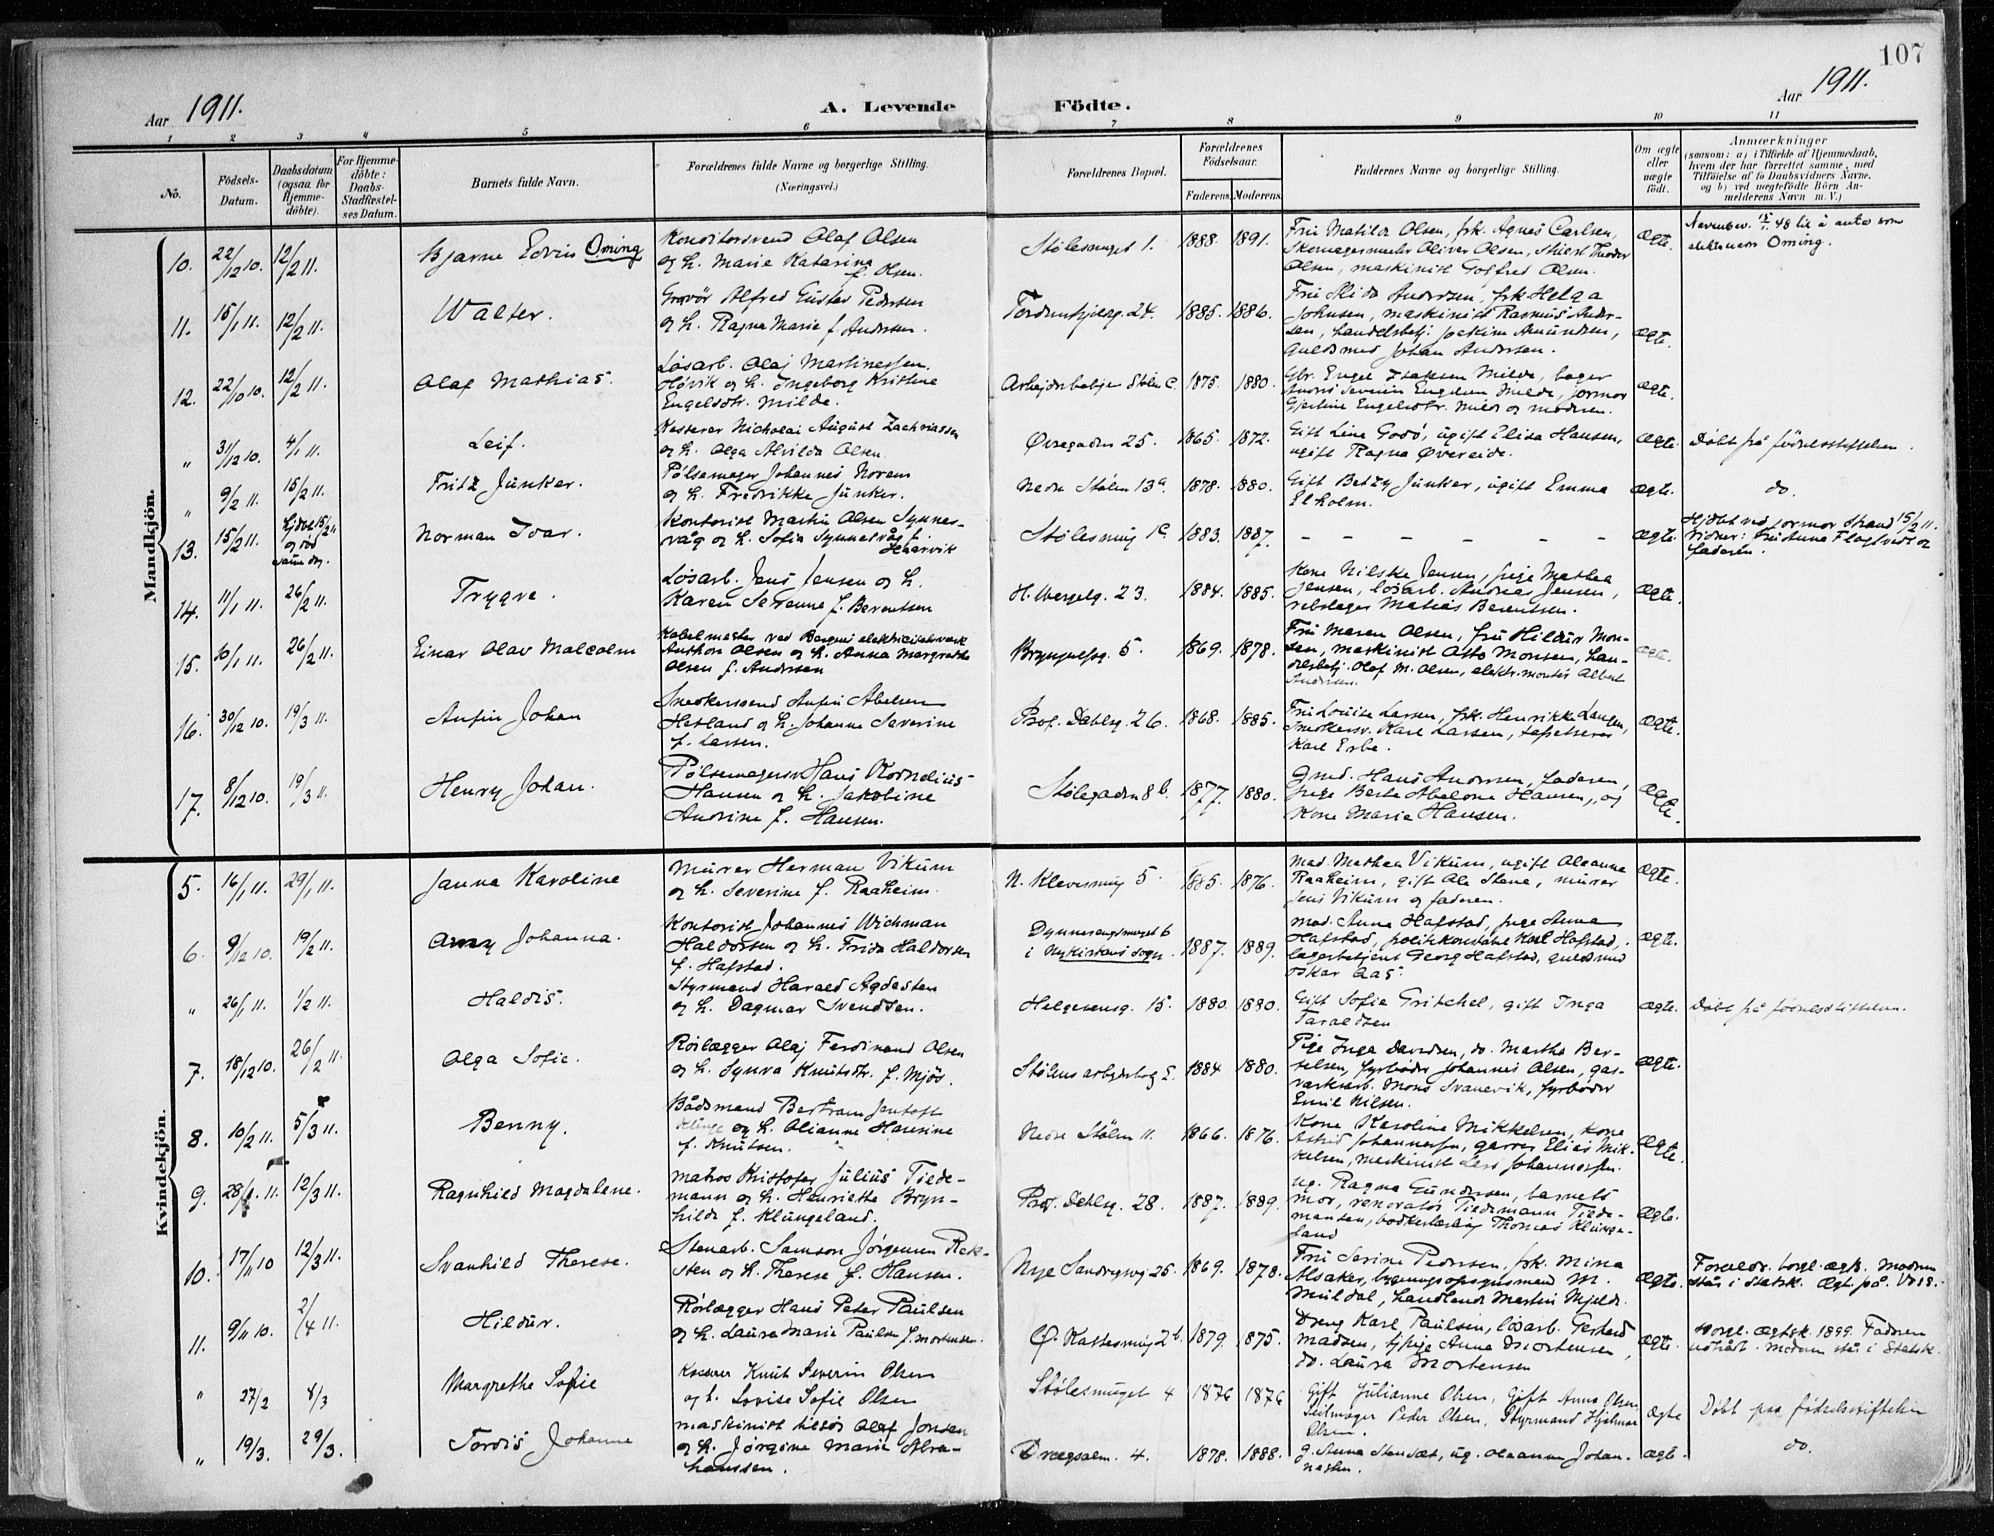 107
Aar 1911.
A. Levende Födte.
Aar 1911.
1 2 3 4 5 6 7 8 9 10 11
No.
Födsels-
Datum.
Daabsdatum
(ogsaa for
Hjemme-
döbte).
For Hjemme-
döbte:
Daabs-
Stadfæstel-
ses Datum.
Barnets fulde Navn.
Forældrenes fulde Navne og borgerlige Stilling.
(Næringsvei.)
Forældrenes Bopæl.
Forældrenes
Födselsaar.
Faderens. Moderens.
Faddernes Navne og borgerlige Stilling.
Om ægte
eller
uægte
født.
Anmærkninger
(saasom: a) i Tilfælde af Hjemmedaab,
hvem der har forrettet samme, med
Tilföielse af to Daabsvidners Navne,
og b) ved uægtefödte Börn An-
melderens Navn m. V.)
Mandkjön.
10. 22/12 10. 12/2 11. Bjarne Edvin Oming
Konditorsvend Olaf Olsen
og h. Marie Katarina
f. Olsen.
Stølesmuget 1. 1888. 1891.
Fru Matilda Olsen, frk. Agnes Carlsen,
Skomagermester Oliver Olsen,
Olsen, maskinist Gotfred Olsen.
Ægte.
11. 15/1 11. 12/2 11. Walter.
Gravør Alfred Gustav Pedersen
og h. Ragna Marie f. Andersen.
Tordenskjoldsg. 24. 1885. 1886.
Johnsen, maskinist Rasmus Ander-
sen, handelsbetj. Joakim Amundsen,
Guldsmed Johan Andersen.
Ægte.
12. 22/10 10. 12/2 11. Olaf Mathias.
Løsarb. Olaj Martinessen
Høvik og h. Ingeborg Kristine
Engelsdtr. Milde.
Stølen C. 1875. 1880.
Gjertine Engelsdtr. Milde og moderen.
Ægte.
" 31/12 10. 4/1 11. Leif.
Kasserer Nicholai August Zachriassen
og h. Olga Alvilda Olsen.
Øvregaden 25. 1865. 1872.
Gift Line Godø, ugift Elisa Hansen,
ugift Ragna Øvereide.
Ægte. Døbt på fødselsstiftelsen.
" 9/2 11. 15/2 11. Fritz Junker.
Pølsemager Johannes Norem
og h. Fredrikke Junker.
Nedre Stølen 13a. 1878. 1880.
Gift Betzy Junker, ugift Emma
Ekholm.
Ægte. do.
13. 15/2 11. Hjdøbt 15/2 11
og død
samme dag.
Norman Ivar.
Kontorist Martin Olsen Synnes-
våg og h. Sofia Synnesvåg f.
Henrvik
Stølesmug 1c. 1883. 1887.
– – – – – –
Ægte.
Hjdøbt ved jormor Strand 15/2 11.
Vidner: Fru Anna Flagtvedt og
faderen.
14. 11/1 11. 26/2 11. Trygve.
Løsarb. Jens Jensen og h.
Karen Serenne f. Berentsen
H. Wergelg. 23. 1884. 1885.
Kone Nilske Jensen, pige Mathea
Jensen, løsarb. Andreas Jensen,
rebslager Matias Berentsen.
Ægte.
15. 10/1 11. 26/2 11. Einar Olav Malcolm
Kabelmester ved Bergens elektricitetsverk
Anthon Olsen og h. Anna Margrethe
Olsen f. Andersen
5. 1869. 1878.
Fru Maren Olsen, fru Hildur Mon-
sen, maskinist Otto Monsen, han-
delsbetj. Olaf M. Olsen, elektr. montør Albert
Andersen.
Ægte.
16. 30/12 10. 19/3 11. Anfin Johan
Snedkersvend Anfin Abelsen
Hetland og h. Johanne Severine
f. Larsen.
Prof. Dahlsg. 26. 1868. 1885.
Fru Louise Larsen, frk. Henrikke Langøen,
Snedkersv. Karl Larsen, tapetserer
Karl Erbe.
Ægte.
17. 8/12 10. 19/3 11. Henry Johan.
Pølsemagersv. Hans Kornelius
Hansen og h. Jakobine
Andrine f. Hansen.
Stølegaden 8b. 1877. 1880.
Gmd. Hans Andersen, faderen,
pige Berte Abelone Hansen, og
Kone Marie Hansen.
Ægte.
Kvindekjön.
5. 16/1 11. 29/1 11. Janna Karoline
Murer Herman Vikum
og h. Severine f. Raaheim.
N. Kleivesmug 5. 1885. 1876.
Mad. Mathea Vikum, ugift Oleanna
Raaheim, gift Ole Stene, murer
Jens Vikum og faderen.
Ægte.
6. 9/12 10. 19/2 11. Amy Johanna.
Kontorist Johannes Wichman
Haldorsen og h. Frida Haldorsen
f. Hafstad.
6
i Nykirkens sogn. 1887. 1889.
Mad. Anna Hafstad, pige Anna
Hafstad, politikonstabel Karl Hafstad,
lagerbetjent Georg Hafstad, guldsmed
Oskar Aas.
Ægte.
" 26/1 11. 1/2 11. Haldis.
Styrmand Harald Agdesten
og h. Dagmar Svendsen.
Helgesensg. 15. 1880. 1880.
Gift Sofie Gritchel, gift Inga
Taraldsen
Ægte. Døbt på fødselsstiftelsen.
7. 18/12 10. 26/2 11. Olga Sofie.
Rørlægger Olaj Ferdinand Olsen
og h. Synva Knutsdtr. f. Mjøs.
1884 1880.
Pige Inga Davidsen, do. Martha Ber-
telsen, fyrbøder Johannes Olsen, gas-
verksarb. Mons Svanevik, fyrbøder
Emil Nilsen.
Ægte.
8. 10/2 11. 5/3 11. Benny.
Bådsmand Bertram Jentoft
Klinge og h. Olianne Hansine
f. Knutsen.
Nedre Stølen 11. 1866. 1876.
Kone Karoline Mikkelsen, kone
Astrid Johannessen, garver Elias Mik-
kelsen, maskinist Lars Johannessen.
Ægte.
9. 12/3 11. Ragnhild Magdalene.
Matros Kristofer Julius Tiede-
mann og h. Henriette Bryn-
hilde f. Klungeland.
Prof. Dahlsg. 28. 1887. 1889.
Ug. Ragna Gundersen, barnets
mor, renovatør Tiedemann Tiede-
mansen, Thomas Klunge-
land
Ægte.
10. 17/11 10 12/3 11. Svanhild Therese.
Stenarb. Samson Jørgensen Rek-
sten og h. Therese f. Hansen.
Nye Sandvigsvej 25. 1869. 1878.
Fru Serine Pedersen, frk. Mina
Alsaker, bygningsopsynsmand M.
Muldal, handlende Martin Mjelde.
Ægte.
Forældr. borgl. ægtv. Moderen
står i statsk.
11. 9/11 10. 2/4 11. Hildur.
Rørlægger Hans Peter Paulsen
og h. Laura Marie Paulsen f. Mortensen.
1879. 1875.
Dreng Karl Paulsen, løsarb. Gerhard
Madsen, tj.pige Anna Mortensen,
do. Laura Mortensen
Ægte.
Borgl. ægtsk. 1899. Faderen
udtrådt. Moderen står i Statsk.
" 27/2 8/3 Margrethe Sofie
Knut Severin Olsen
og h. Lovise Sofie Olsen
Stølesmuget 4 1876 1876
Gift Julianne Olsen, Gift Anna Olsen,
Seilmager Peder Olsen, Styrmand Hjalmar
Olsen.
Ægte Døbt paa fødselsstiftelsen
" 19/3. 29/3. Tordis Johanne
Maskinist Olaf Jonsen
og h. Jørgine Marie Abra-
hamsen.
Dræggsalm. 4. 1878. 1888.
g. Anna Stensæt, ug. Oleanna Johan-
nesen.
Ægte. do.